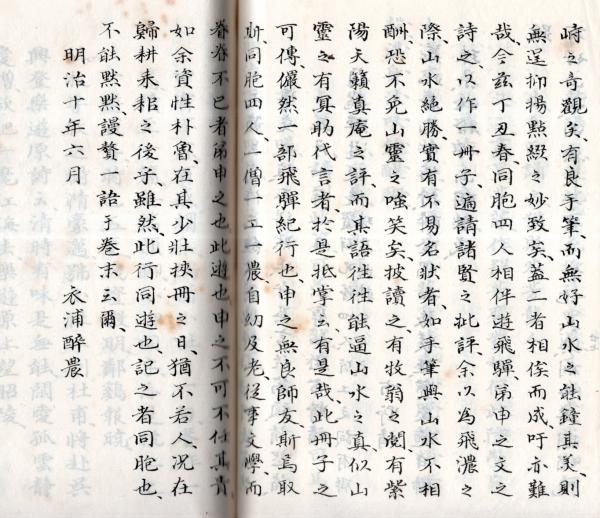 峙之奇觀矣、有良手筆、而無好山水之能鍾其美、則
無逞抑揚點綴之妙致矣、蓋二者相俟而成、吁亦難
哉、今茲丁丑春、同胞四人相伴遊飛騨、弟申之文之
詩之、以作一冊子、遍請諸賢之批評、余以為飛濃之
際山水絶勝、實有不易名狀者、如手筆與山水不相
酬、恐不免山靈之嗤笑矣、披讀之有牧翁之閲、有紫
陽天籟真庵之評、而其語往往能逼山水之真、似山
靈之有冥助代言者、於是抵掌云、有是哉、此冊子之
可傳、儼然一部飛騨紀行也、申之無良師友、斯焉取
斯、同胞四人、一僧一工一農、自幼及老、從事文學而
眷眷不已者、弟申之也、此遊也、申之不可不任其責
如余資性朴魯、在其少壯挾冊之日、猶不若人、況在
歸耕耒耜之後乎、雖然、此行同遊也、記之者同胞也、
不能默默、謾贅一詒于卷末云爾、
明治十年六月　　　衣浦醉農